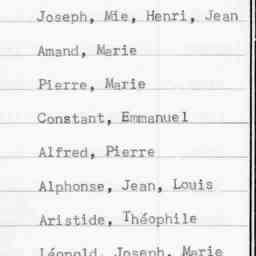 Joseph, Mie, Henri, Jean
Amand, Marie
Pierre, Marie
Constant, Emmanuel
Alfred, Pierre
Alphonse, Jean, Louis
Aristide, Théophile
Léopold, Joseph, Marie